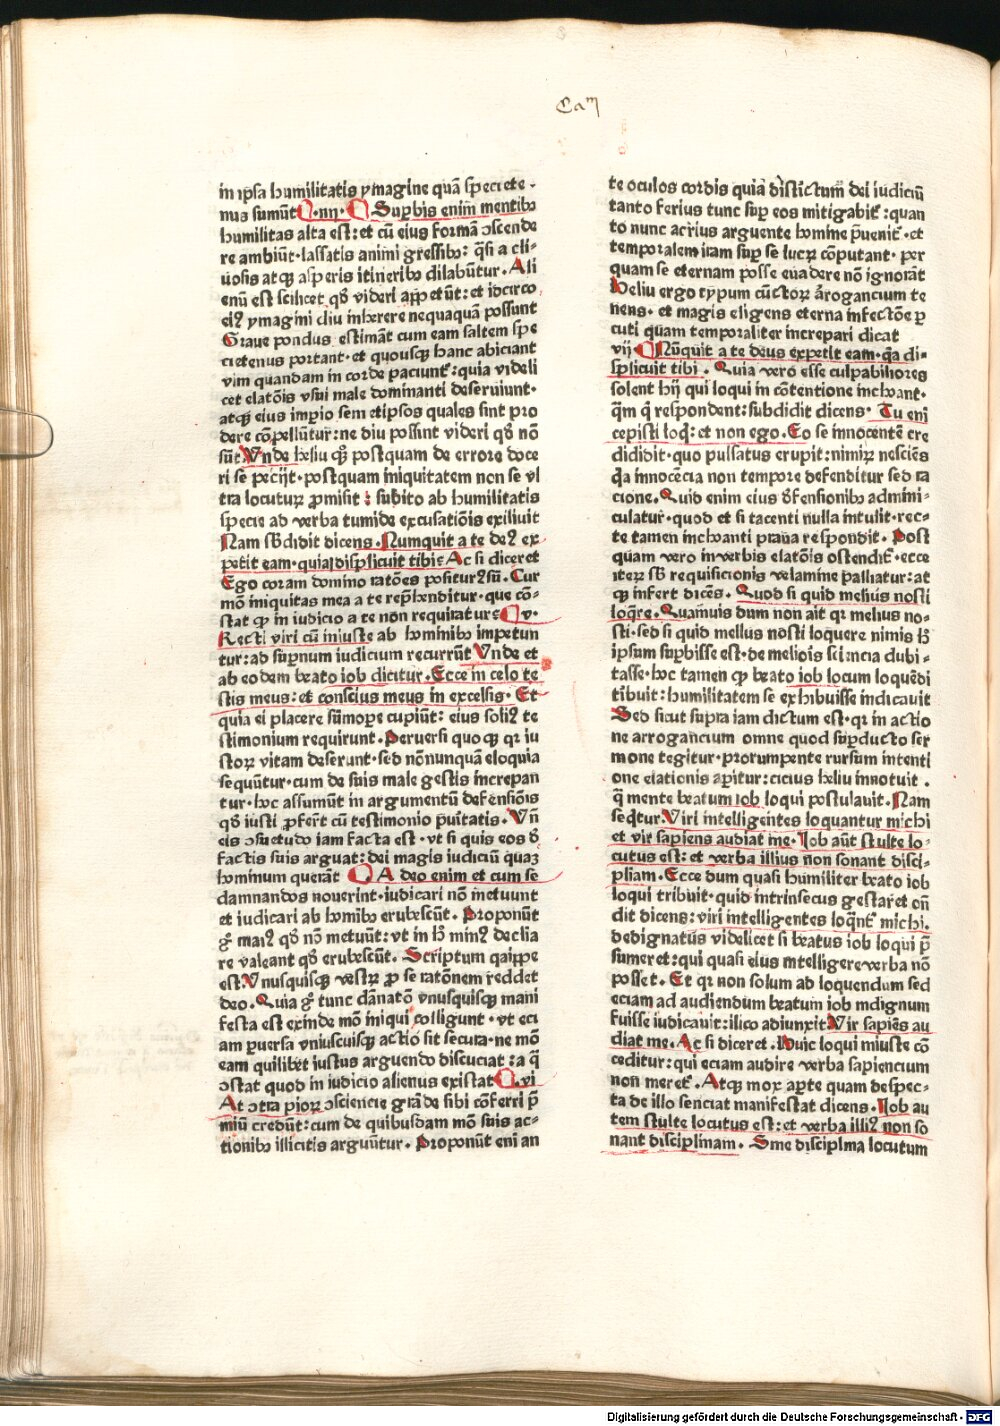 Cam
in ipsa humilitatis ymagine quā specie te-
nus sumūt ¶.iiii. ¶ Suꝑbis enim mentibꝰ
humilitas alta est: et cū eius formā ↄscende
re ambiūt. lassatis animi gressibꝰ: q̄si a cli-
uosis atqꝫ asperis itineribꝰ dilabūtur. Ali
enū est scilicet qð videri appetūt: et idcirco
eiꝰ ymagini diu inherere nequaquā possunt
Graue pondus estimāt cum eam saltem spe
cietenus portant. et quousqꝫ hanc abiciant
vim quandam in corde paciunt᷑: quia videli
cet elatōis vsui male dominanti deseruiunt.
atqꝫ eius impio sem etipsos quales sint pro
dere cōpellūtur: ne diu possint videri qð nō
sūt. Vnde heliu qꝫ postquam de errore doce
ri se pecijt. postquam iniquitatem non se vl
tra locuturꝫ ꝓmisit: subito ab humilitatis
specie ad verba tumide excusatiōis exiliuit
Nam sb̄didit dicens. Numquit a te deꝰ ex
petit eam. quia displicuit tibi: Ac si diceret
Ego coram domino ratōes positurꝰ sū. Cur
mō iniquitas mea a te rep̄henditur. que cō-
stat ꝙ in iudicio a te non requiratur: ¶ v.
Recti viri cū iniuste ab hominibꝰ impetun
tur: ad suꝑnum iudicium recurrūt Vnde et
ab eodem beato iob dicitur. Ecce in celo te
stis meus: et conscius meus in excelsis. Et
quia ei placere sūmoꝑe cupiūt: eius soliꝰ te
stimonium requirunt. Peruersi quoqꝫ qr iu
storꝫ vitam deserunt. sed nōnunquā eloquia
sequūtur. cum de suis male gestis increpan
tur. hoc assumūt in argumentū defensiōis
qð iusti ꝓferūt cū testimonio p̄uitatis. Vn̄
eis ↄsuetudo iam facta est. vt si quis eos ð
factis suis arguat: dei magis iudiciū quaꝫ
hominum querāt ¶ Adeo enim et cum se
damnandos nouerint. iudicari nō metuunt
et iudicari ab homībꝰ erubescūt. Proponūt
gͦ maiꝰ qð nō metuūt: vt in hͦ minꝰ declia
re valeant qð erubescūt. Scriptum quippe
est. Vnusquisqꝫ vestrꝫ ꝓ se ratōnem reddet
deo. Quia gͦ tunc dānatō vnusquisqꝫ mani
festa est exinde mō iniqui colligunt. vt eci
am ꝑuersa vniuscuisqꝫ actio sit secura. ne mō
eam quilibet iustus arguendo discuciat: a q̄
ↄstat quod in iudicio alienus existat ¶.vi
At ↄtra piorꝫ ↄsciencie grāde sibi cōferri p̄
miū credūt: cum de quibusdam mō suis ac-
tionibꝰ illicitis arguūtur. Proponūt eni an
te oculos cordis quia districtum dei iudiciū
tanto ferius tunc suꝑ eos mitigabit᷑: quan
to nunc acrius arguente homine p̄uenit᷑. et
temporalem iram suꝑ se lucrꝫ cōputant. per
quam se eternam posse euadere nō ignorāt
Heliu ergo typum cūctorꝫ arogancium te
nens. et magis eligens eterna infectōe ꝑ
cuti quam temporaliter increpari dicat
vij. ¶ Nūquit a te deus expetit eam. qa di-
splicuit tibi. Quia vero esse culpabiliores
solent hij qui loqui in cōtentione inchoant.
qm̄ q̄ respondent: subdidit dicens. Tu eni
cepisti loqͥ: et non ego. Eo se innocentē cre
didit. quo pulsatus erupit: nimirꝫ nesciēs
qa innocēcia non tempore defenditur sed ra
cione. Quid enim eius ðfensionibꝰ admini-
culatur. quod et si tacenti nulla intulit. rec-
te tamen inchoanti praua respondit. Post
quam vero in verbis elatōis ostendit᷑. ecce
iterꝫ sb̄ requisicionis velamine palliatur: at
qꝫ infert dicēs. Quod si quid melius nosti
loqͥre. Quamuis dum non ait qr melius no-
sti. sed si quid melius nosti loquere nimis hͦ
ipsum suꝑbisse est. de melioīs sciencia dubi-
tasse. hoc tamen ꝙ beato iob locum loquēdi
tibuit: humilitatem se exhibuisse indicauit
Sed sicut supra iam dictum est. qr in actio
ne arrogancium omne quod suꝑducto ser
mone tegitur. prorumpente rursum intenti
one elationis aꝑitur: cicius heliu innotuit.
q̄ mente beatum iob loqui postulauit. Nam
seqͥtur. Viri intelligentes loquantur michi
et vir sapiens audiat me. Iob aūt stulte lo-
cutus est: et verba illius non sonant disci-
pliam. Ecce dum quasi humiliter beato iob
loqui tribuit. quid intrinsecus gestaret on̄
dit dicens: viri intelligentes loqͥnt᷑ michi.
dedignatus videlicet si beatus iob loqui p̄
sumeret: qui quasi eius intelligere verba nō
posset. Et qr non solum ad loquendum sed
eciam ad audiendum beatum iob indignum
fuisse iudicauit: ilico adiunxit Vir sapiēs au
diat me. Ac si diceret. Huic loqui iniuste cō
ceditur: qui eciam audire verba sapiencium
non meret᷑. Atqꝫ mox aꝑte quam despec-
ta de illo senciat manifestat dicens. Iob au
tem stulte locutus est: et verba illiꝰ non so
nant disciplinam. Sine disciplina locutum
Digitalisierung gefördert durch die Deutsche Forschungsgemeinschaft - DFG